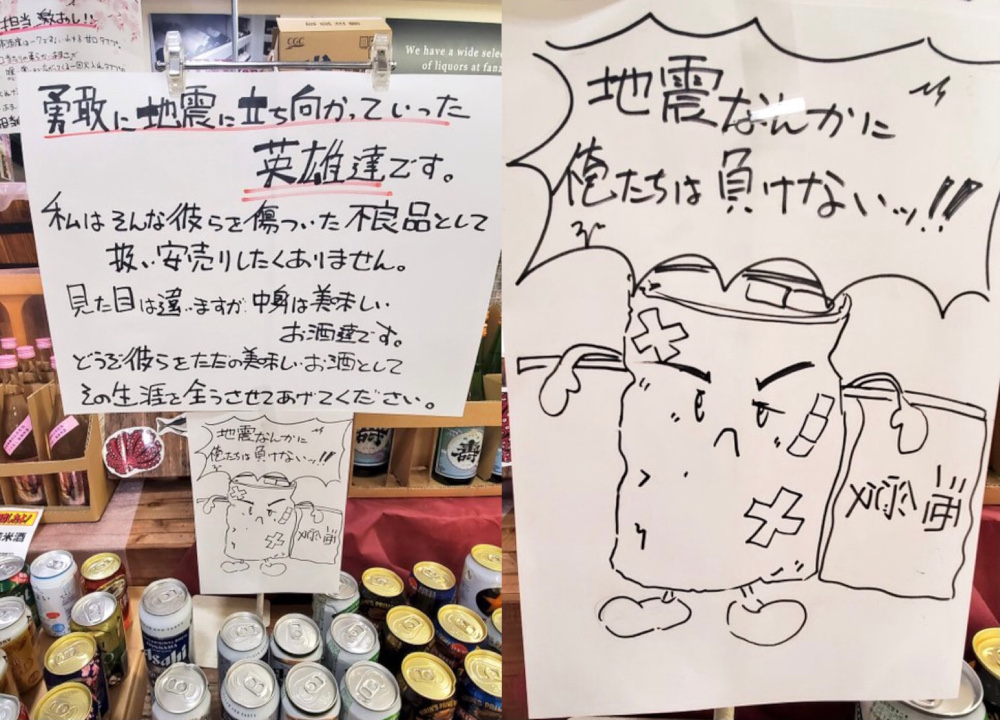 担当激おし!!
CGC
We have a wide selec
of liquors at fanz
勇敢に地震に立ち向かっていった
英雄達です。
私はそんな彼らを傷ついた不良品として
扱い安売りしたくありません。
見た目は違いますが中身は美味しい
お酒達です。
どうぞ彼らをただの美味しいお酒として
その生涯を全うさせてあげてください。
地震なんかに
俺たちは負けないッ!!
米酒
Asahi
地震なんかに
俺たちは負けないッ!!